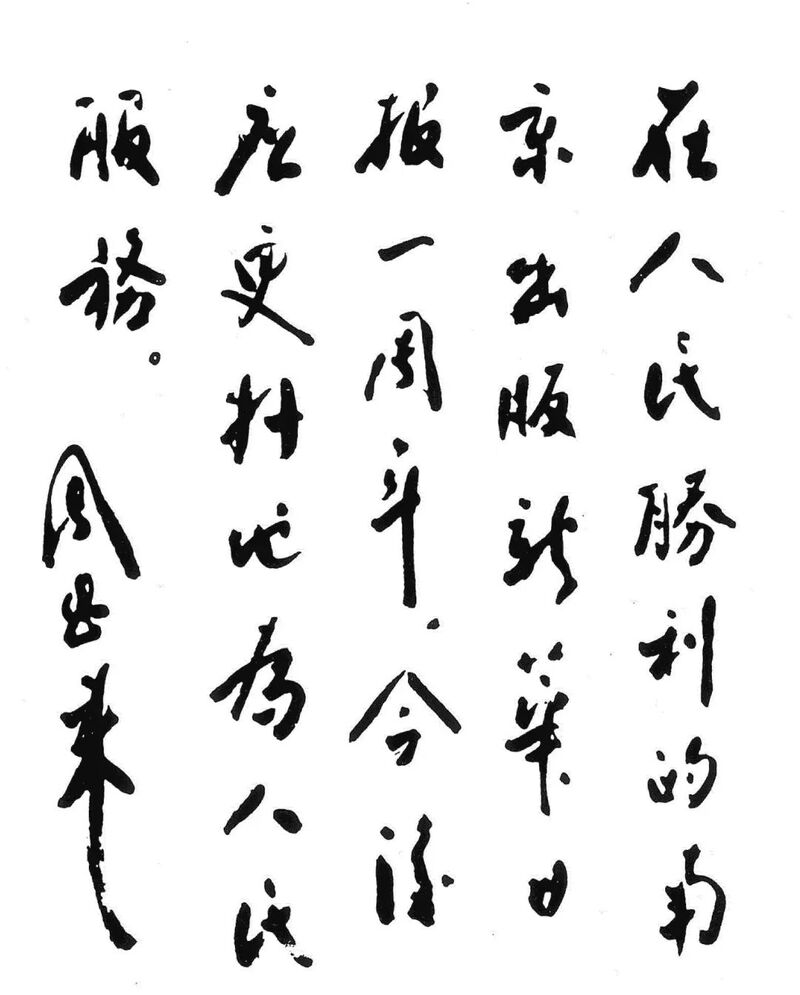 在人民勝利的南
京出版新華日
报一周年，今後
应更好地为人民
服務。
周恩来